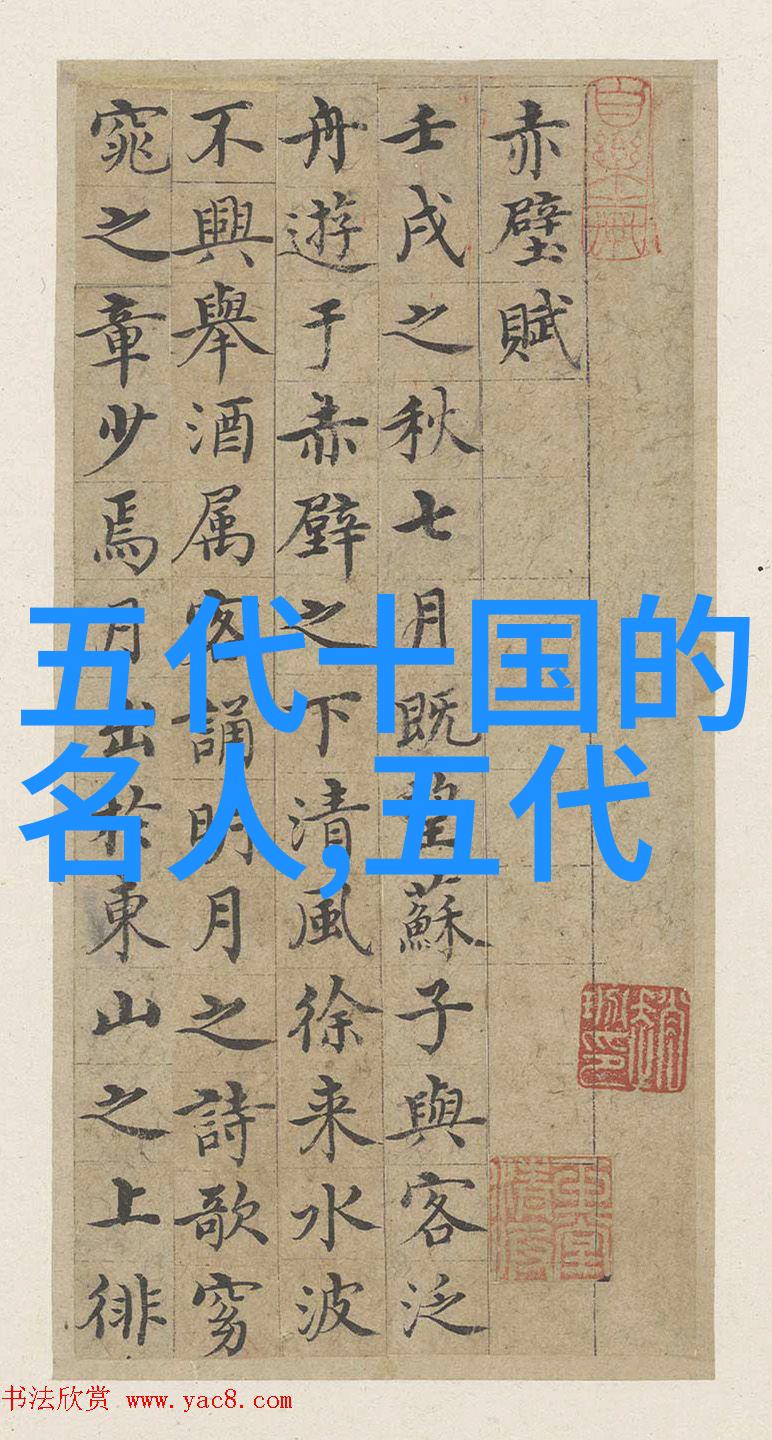 赤壁賦
壬戌之秋七月既望蘇子與客泛
舟遊于赤壁之下清風徐来水波
不興舉酒属客誦明月之詩歌窈
窕之章少焉月出於東山之上徘
五代十国的
名人,五代
书法欣赏 www.yac8.com